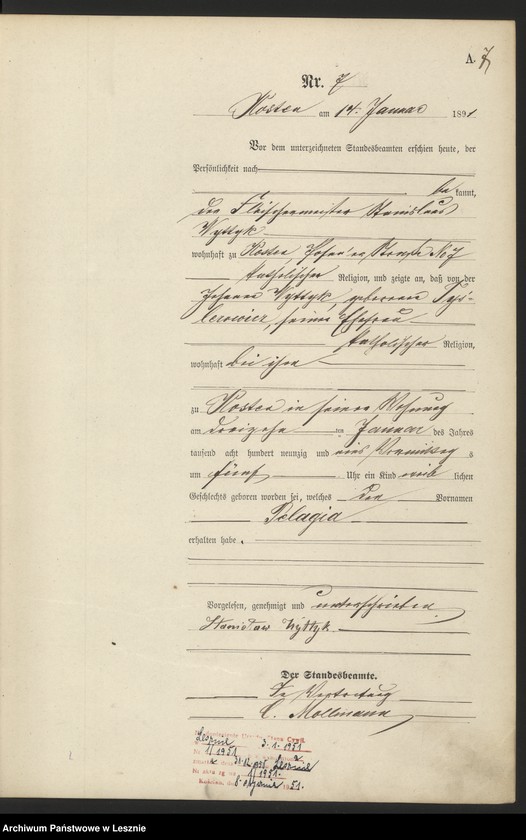 A. 7
Nr. 7
Kosten am 14. Januar 1891
Vor dem unterzeichneten Standesbeamten erschien heute, der
Persönlichkeit nach
be kannt,
der Fleischermeister Stanislaus
Wyttyk
wohnhaft zu Kosten, Posen'er Straße No 7
katholischer Religion, und zeigte an, daß von der
Johanna Wyttyk, geborenen
seiner Ehefrau
katholischer Religion,
wohnhaft bei ihm
zu Kosten in seiner Wohnung
am dreizehn ten Januar des Jahres
tausend acht hundert neunzig und eins Vormittag s
um fünf Uhr ein Kind weib lichen
Geschlechts geboren worden sei, welches den Vornamen
Pelagia
erhalten habe.
Vorgelesen, genehmigt und unterschrieben
Stanisław Wyttyk
Der Standesbeamte.
In Vertretung
C. Mollmann
3.1.1951
Nr 1/1951
1/1951.
1951.
Archiwum Państwowe w Lesznie